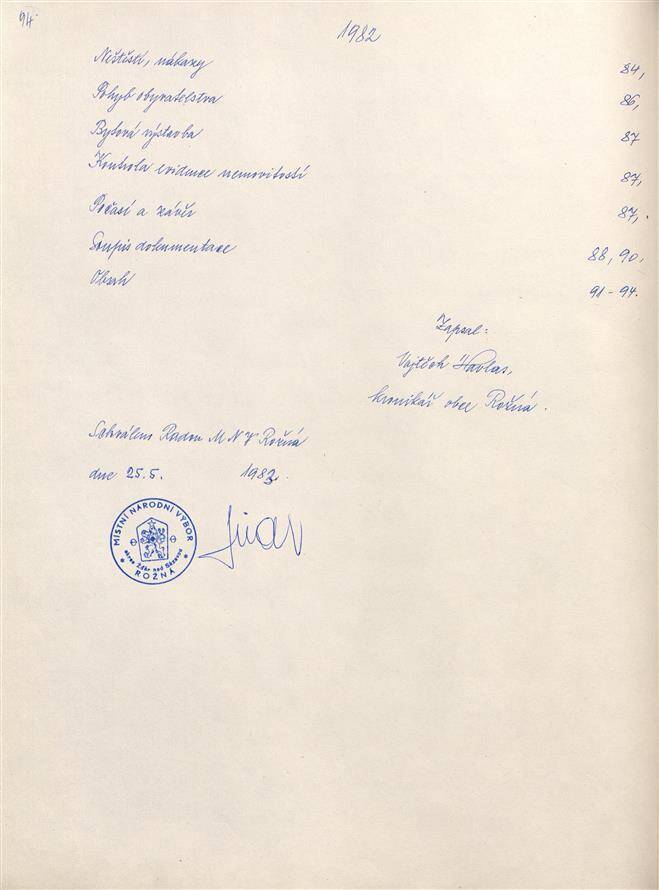 94
1982
Neštěstí, nákazy 84,
Pohyb obyvatelstva 86,
Bytová výstavba 87
Kontrola evidence nemovitostí 87,
Počasí a závěr 87,
Soupis dokumentace 88, 90.
Obsah 91-94.
Zapsal:
Vojtěch Havlas,
kronikář obce Rožná.
Schváleno Radou MNV Rožná
dne 25.5. 1983.
MÍSTNÍ NÁRODNÍ VÝBOR
okres Žďár nad Sázavou
ROŽNÁ